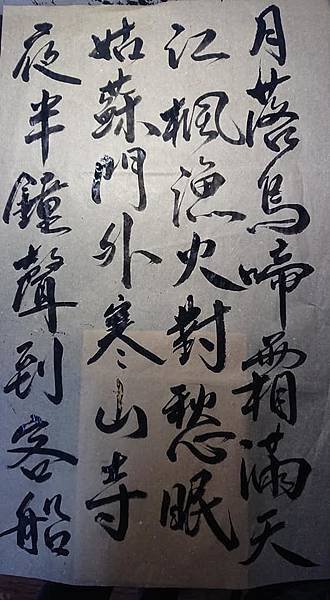 月落烏啼霜滿天
江楓漁火對愁眠
姑蘇門外寒山寺
夜半鐘聲到客船